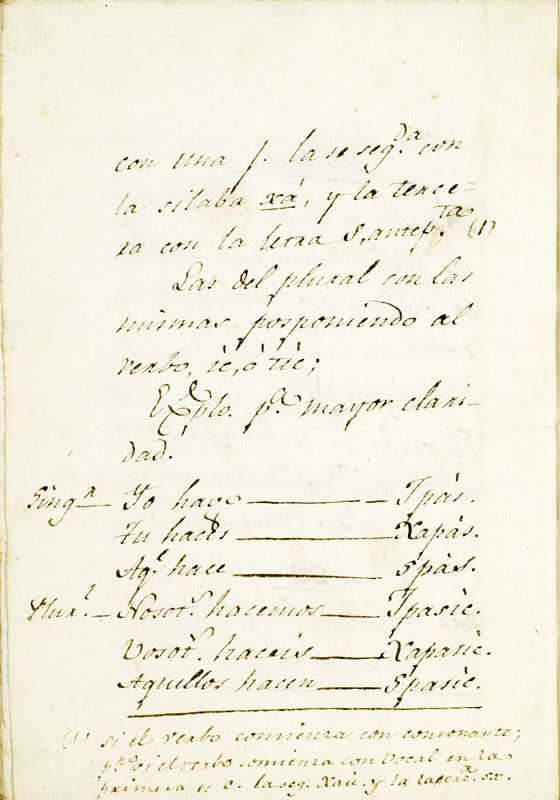 con una J. la se seg.da con
la silaba xá, y la terce-
ra con la letra S, antep.ta (1)
Las del plural con las
mismas posponiendo al
verbo, ic, ó tic;
Exemplo. p.a mayor clari-
dad.
Sing.r Yo hago Jpás.
Tu haces Xapás.
Aq.l hace Spás.
Plur.l Nosot.s hacemos Jpasic.
Vosot.s haceis Xapasic.
Aquellos hacen Spasic.
(1) si el verbo comienza con consonante;
p.ro si el verbo comienza con vocal en la
primera es c. la seg. Xaú. y la